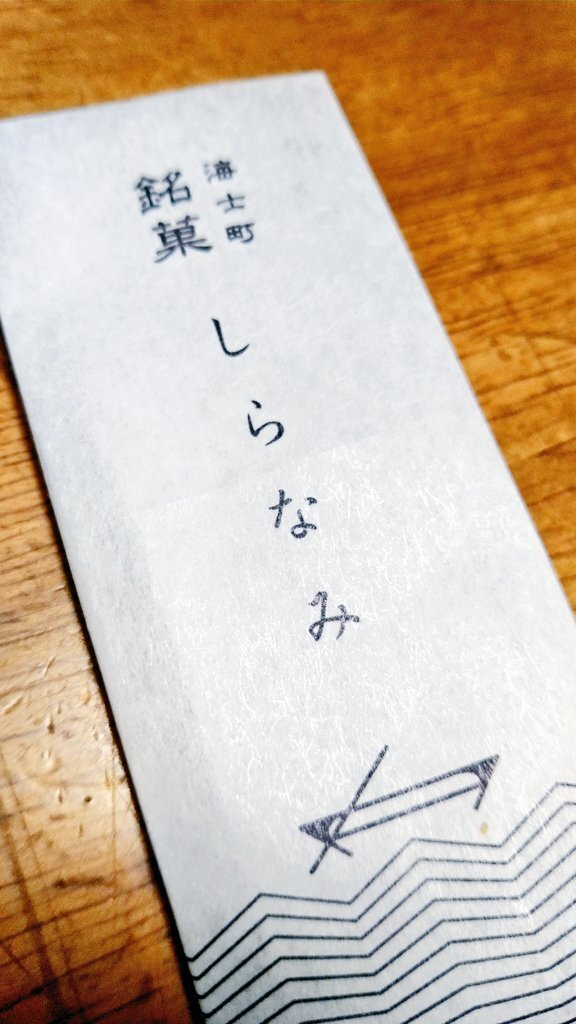 海士町
銘菓
しらなみ